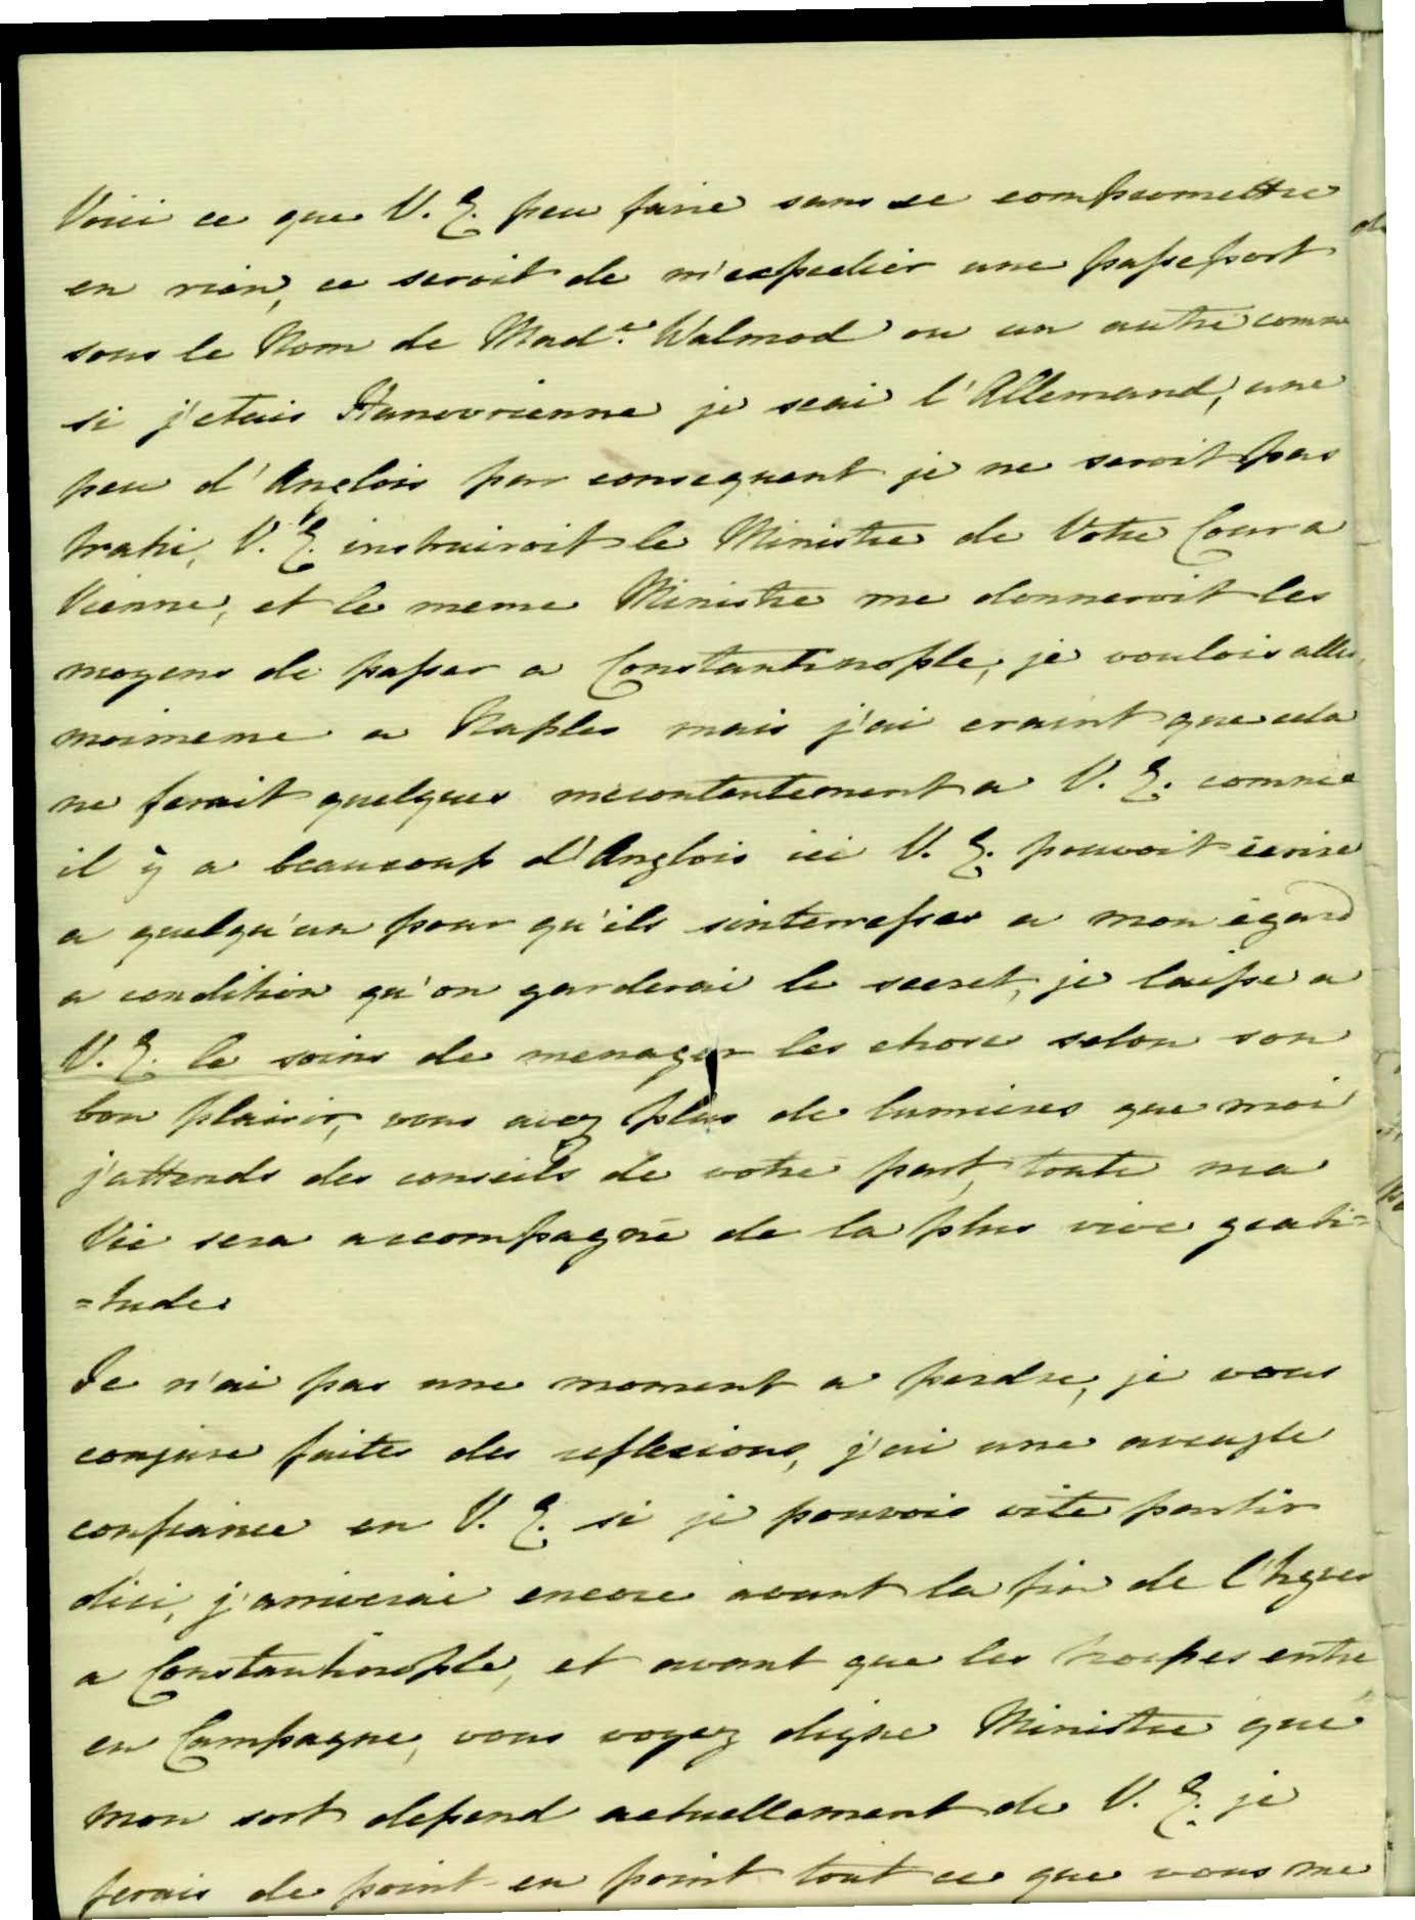 Voici ce que V. E. peu faire sans se compromettre
en rien, ce seroit de m'expedier une passeport
sous le Nom de Mad.e Walmod ou un autre comme
si j'etais Hanovrienne je scai l'Allemand, une
peu d'Anglois par consequent je ne seroit pas
trahi, V. E. instruiroit le Ministre de Votre Cour a
Vienne, et le meme Ministre me donneroit les
moyens de passer a Constantinople, je voulois aller
moimeme a Naples mais j'ai craint que cela
ne ferait quelques mecontentement a V. E. comme
il y a beaucoup d'Anglois ici V. E. pouvoit ecrire
a quelqu'un pour qu'ils sinterresser a mon egard
a condition qu'on garderai le secret, je laisse a
V. E. le soins de menager les chose selon son
bon plaisir, vous avez plus de lumieres que moi
j'attends des conseils de votre part, toute ma
Vie sera accompagné de la plus vive grati=
=tude.
Je n'ai pas une moment a perdre, je vous
conjure faites des reflexions, j'ai une aveugle
confiance en V. E. si je pouvois vite partir
dici, j'arriverai encore avant la fin de l'hyver
a Constantinople, et avant que les troupes entre
en Campagne, vous voyez digne Ministre que
mon sort depend actuellement de V. E. je
ferais de point en point tout ce que vous me